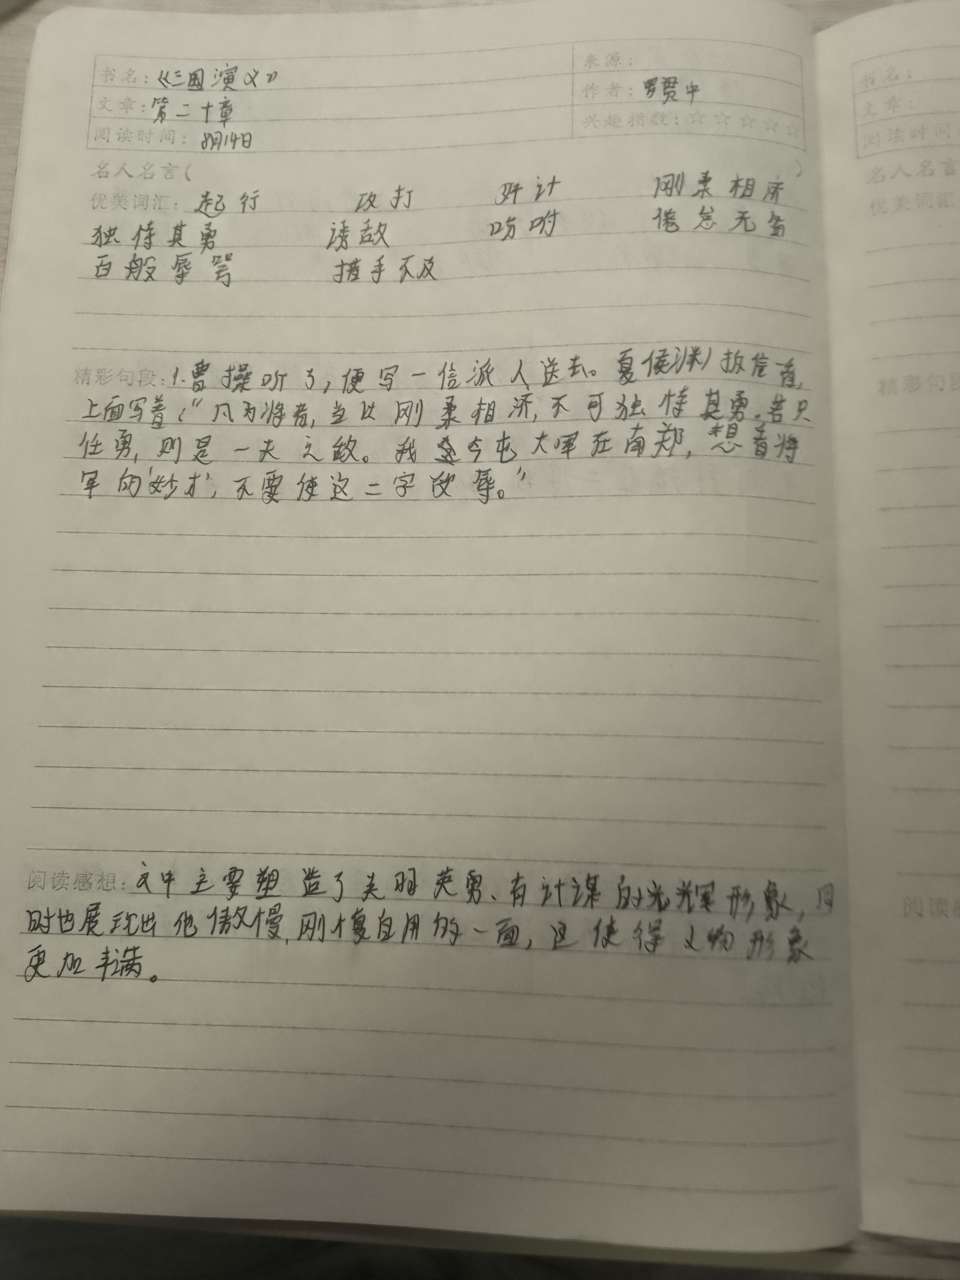 书名：《三国演义》
来源：
文章：第二十章
作者：罗贯中
阅读时间：8月14日
兴趣指数：☆☆☆☆☆
名人名言（ ）
优美词汇：起行 攻打 奸计 刚柔相济
独恃其勇 诱敌 吩咐
百般辱骂 措手不及
精彩句段：1.曹操听了，便写一信派人送去。夏侯渊拆信看，
上面写着：“凡为将者，当以刚柔相济，不可独恃其勇。若只
任勇，则是一夫之敌。我今屯大军在南郑，想看将
军的‘妙才’，不要使这二字欧辱。”
阅读感想：文中主要塑造了关羽英勇、有计谋的光辉形象，同
时也展现出他傲慢，刚愎自用的一面，这使得人物形象
更加丰满。
书名：
文章
阅读时间
名人名言
优美词汇
精彩句段
阅读